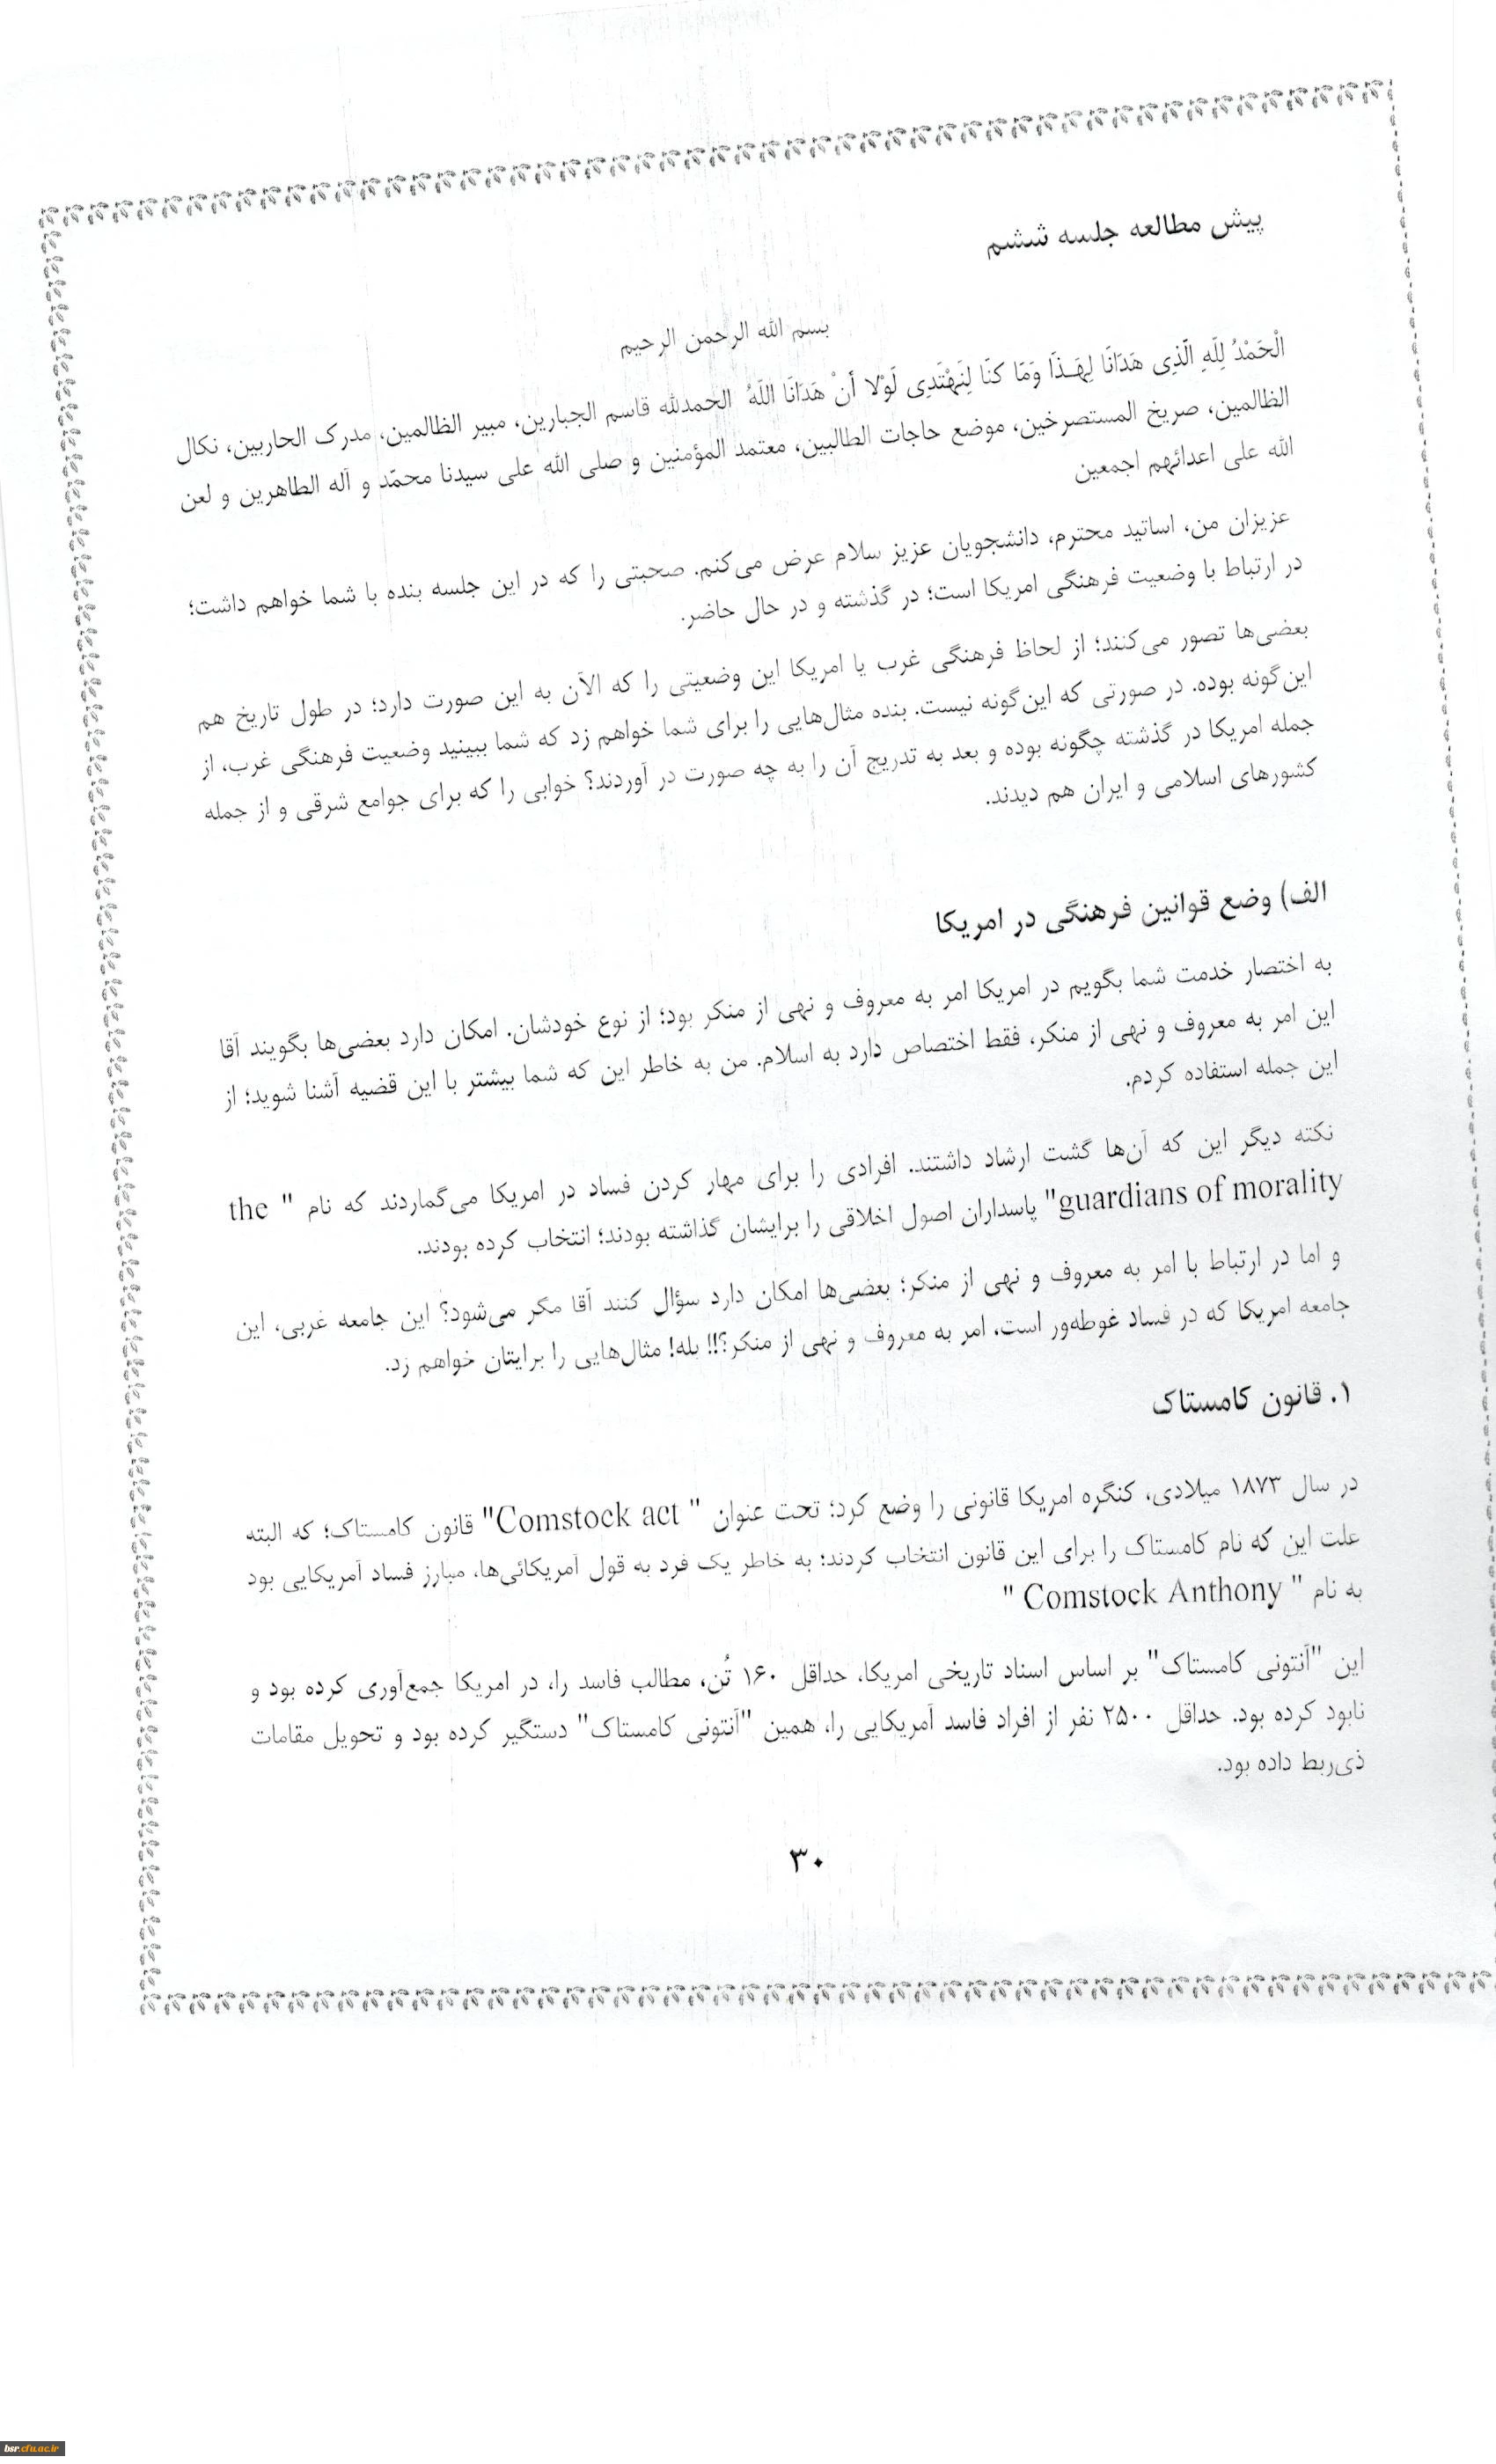 پیش مطالعه جلسه ششم
بسم الله الرحمن الرحیم
الْحَمْدُ لِلَهِ الَّذِی هَدَانَا لِهَـذَا وَمَا كنَا لِنَهْتَدِی لَوْلا أنْ هَدَانَا اللَهُ الحمدلله قاسم الجبارین، مبیر الظالمین، مدرک الحاربین، نکال
الظالمین، صریخ المستصرخین، موضع حاجات الطالبین، معتمد المؤمنین و صلی الله علی سیدنا محمّد و آله الطاهرین و لعن
الله علی اعدائهم اجمعین
عزیزان من، اساتید محترم، دانشجویان عزیز سلام عرض می‌کنم. صحبتی را که در این جلسه بنده با شما خواهم داشت؛
در ارتباط با وضعیت فرهنگی امریکا است؛ در گذشته و در حال حاضر.
بعضی‌ها تصور می‌کنند؛ از لحاظ فرهنگی غرب یا امریکا این وضعیتی را که الآن به این صورت دارد؛ در طول تاریخ هم
این‌گونه بوده. در صورتی که این‌گونه نیست. بنده مثال‌هایی را برای شما خواهم زد که شما ببینید وضعیت فرهنگی غرب، از
جمله امریکا در گذشته چگونه بوده و بعد به تدریج آن را به چه صورت در آوردند؟ خوابی را که برای جوامع شرقی و از جمله
کشورهای اسلامی و ایران هم دیدند.
الف) وضع قوانین فرهنگی در امریکا
به اختصار خدمت شما بگویم در امریکا امر به معروف و نهی از منکر بود؛ از نوع خودشان. امکان دارد بعضی‌ها بگویند آقا
این امر به معروف و نهی از منکر، فقط اختصاص دارد به اسلام. من به خاطر این که شما بیشتر با این قضیه آشنا شوید؛ از
این جمله استفاده کردم.
نکته دیگر این که آن‌ها گشت ارشاد داشتند. افرادی را برای مهار کردن فساد در امریکا می‌گماردند که نام " the
guardians of morality" پاسداران اصول اخلاقی را برایشان گذاشته بودند؛ انتخاب کرده بودند.
و اما در ارتباط با امر به معروف و نهی از منکر؛ بعضی‌ها امکان دارد سؤال کنند آقا مگر می‌شود؟ این جامعه غربی، این
جامعه امریکا که در فساد غوطه‌ور است، امر به معروف و نهی از منکر؟!! بله! مثال‌هایی را برایتان خواهم زد.
۱. قانون کامستاک
در سال ۱۸۷۳ میلادی، کنگره امریکا قانونی را وضع کرد؛ تحت عنوان " Comstock act" قانون کامستاک؛ که البته
علت این که نام کامستاک را برای این قانون انتخاب کردند؛ به خاطر یک فرد به قول آمریکائی‌ها، مبارز فساد آمریکایی بود
به نام " Comstock Anthony "
این "آنتونی کامستاک" بر اساس اسناد تاریخی امریکا، حداقل ۱۶۰ تُن، مطالب فاسد را، در امریکا جمع‌آوری کرده بود و
نابود کرده بود. حداقل ۲۵۰۰ نفر از افراد فاسد آمریکایی را، همین "آنتونی کامستاک" دستگیر کرده بود و تحویل مقامات
ذی‌ربط داده بود.
۳۰
bsr.cfu.ac.ir